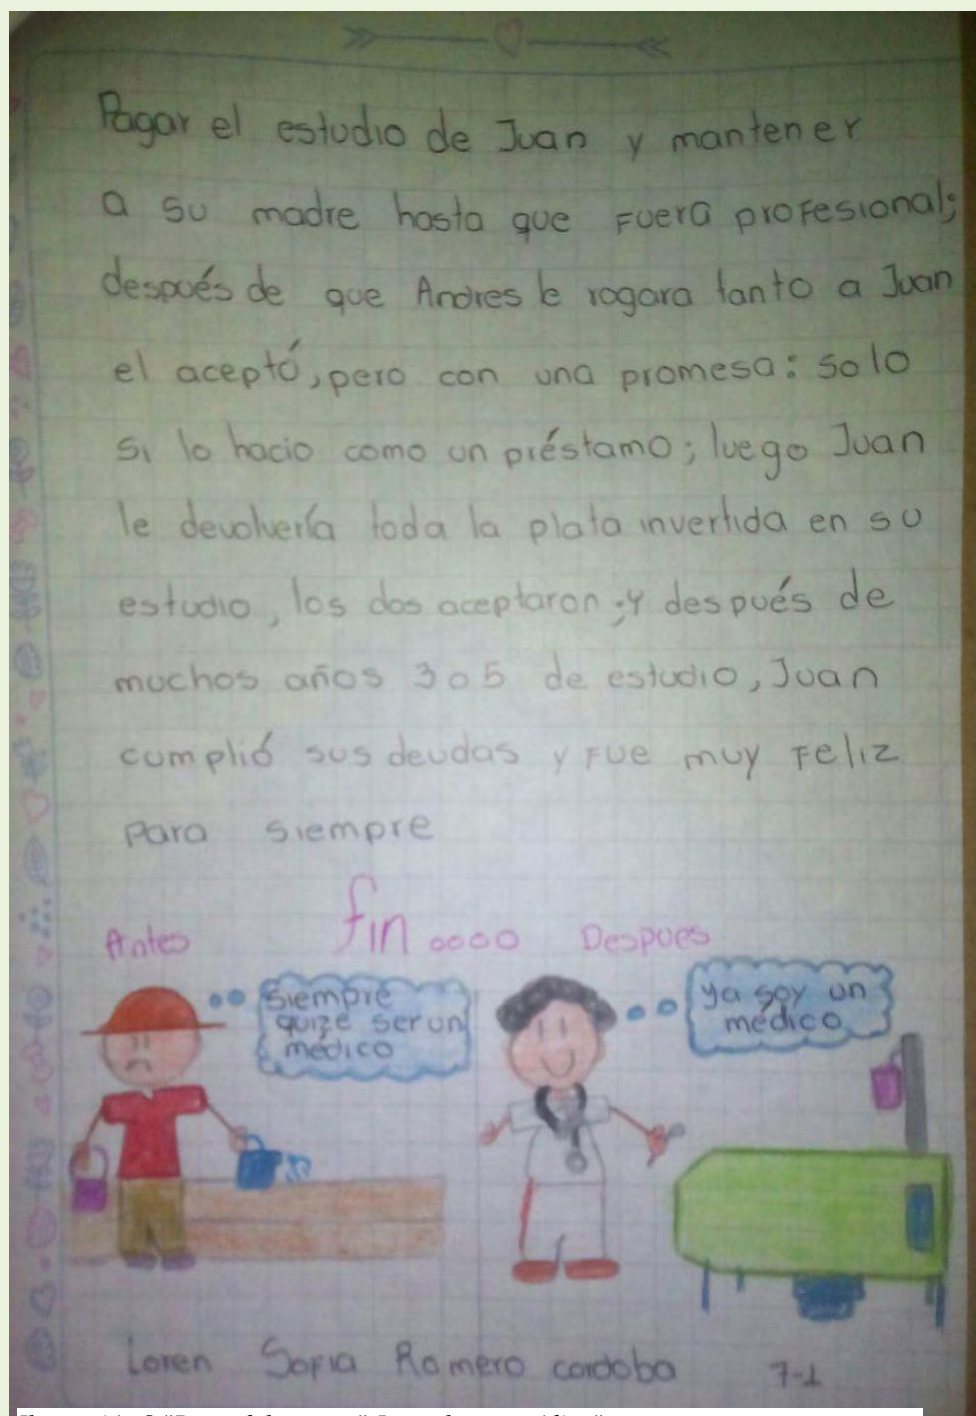 Pagar el estudio de Juan y mantener
a su madre hasta que fuera profesional;
después de que Andres le rogara tanto a Juan
el aceptó, pero con una promesa: solo
si lo hacio como un préstamo; luego Juan
le devolvería toda la plata invertida en su
estudio, los dos aceptaron ;y después de
muchos años 3 o 5 de estudio, Juan
cumplió sus deudas y fue muy feliz
para siempre
fin oooo
Antes
Despues
Siempre
quize ser un
médico
ya soy un
médico
Loren Sofia Romero cordoba 7-1